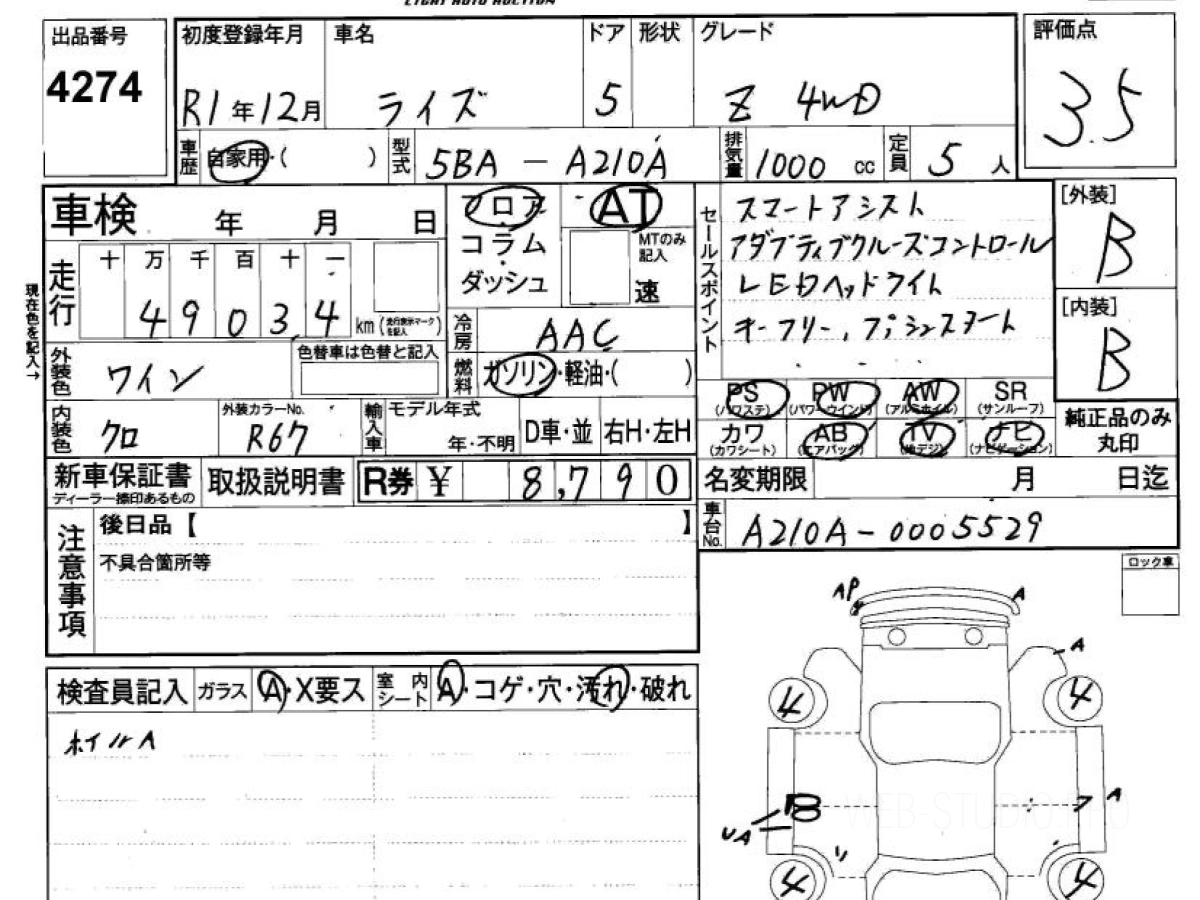 LIGHT AUTO AUCTION
出品番号
4274
初度登録年月 R1年12月
車名 ライズ
ドア 5
形状
グレード Z 4WD
評価点 3.5
車歴 自家用・( )
型式 5BA-A210A
排気量 1000 cc
定員 5人
車検 年 月 日
フロア
コラム
・
ダッシュ
AT
MTのみ記入
速
セールスポイント
スマートアシスト
アダプティブクルーズコントロール
LEDヘッドライト
キーフリー、プシュスタート
[外装]
B
[内装]
B
現在色を記入→
走行
十 万 千 百 十 一
4 9 0 3 4 km (走行表示マークを記入)
冷房 AAC
燃料 ガソリン・軽油・( )
外装色 ワイン
色替車は色替と記入
内装色 クロ
外装カラーNo. R67
輸入車
モデル年式
年・不明
D車・並
右H・左H
PS (パワステ)
PW (パワーウインド)
AW (アルミホイル)
SR (サンルーフ)
カワ (カワシート)
AB (エアバッグ)
TV (地デジ)
ナビ (ナビゲーション)
純正品のみ
丸印
新車保証書
ディーラー捺印あるもの
取扱説明書
R券 ¥ 8,790
名変期限 月 日迄
車台No. A210A-0005529
注意事項
後日品【 】
不具合箇所等
ロック車
検査員記入
ガラス A・X要ス
室内シート A・コゲ・穴・汚れ・破れ
ホイルA
AP
A
A
4
4
B
UA
A
4
4
WEB-STUDIO.PRO